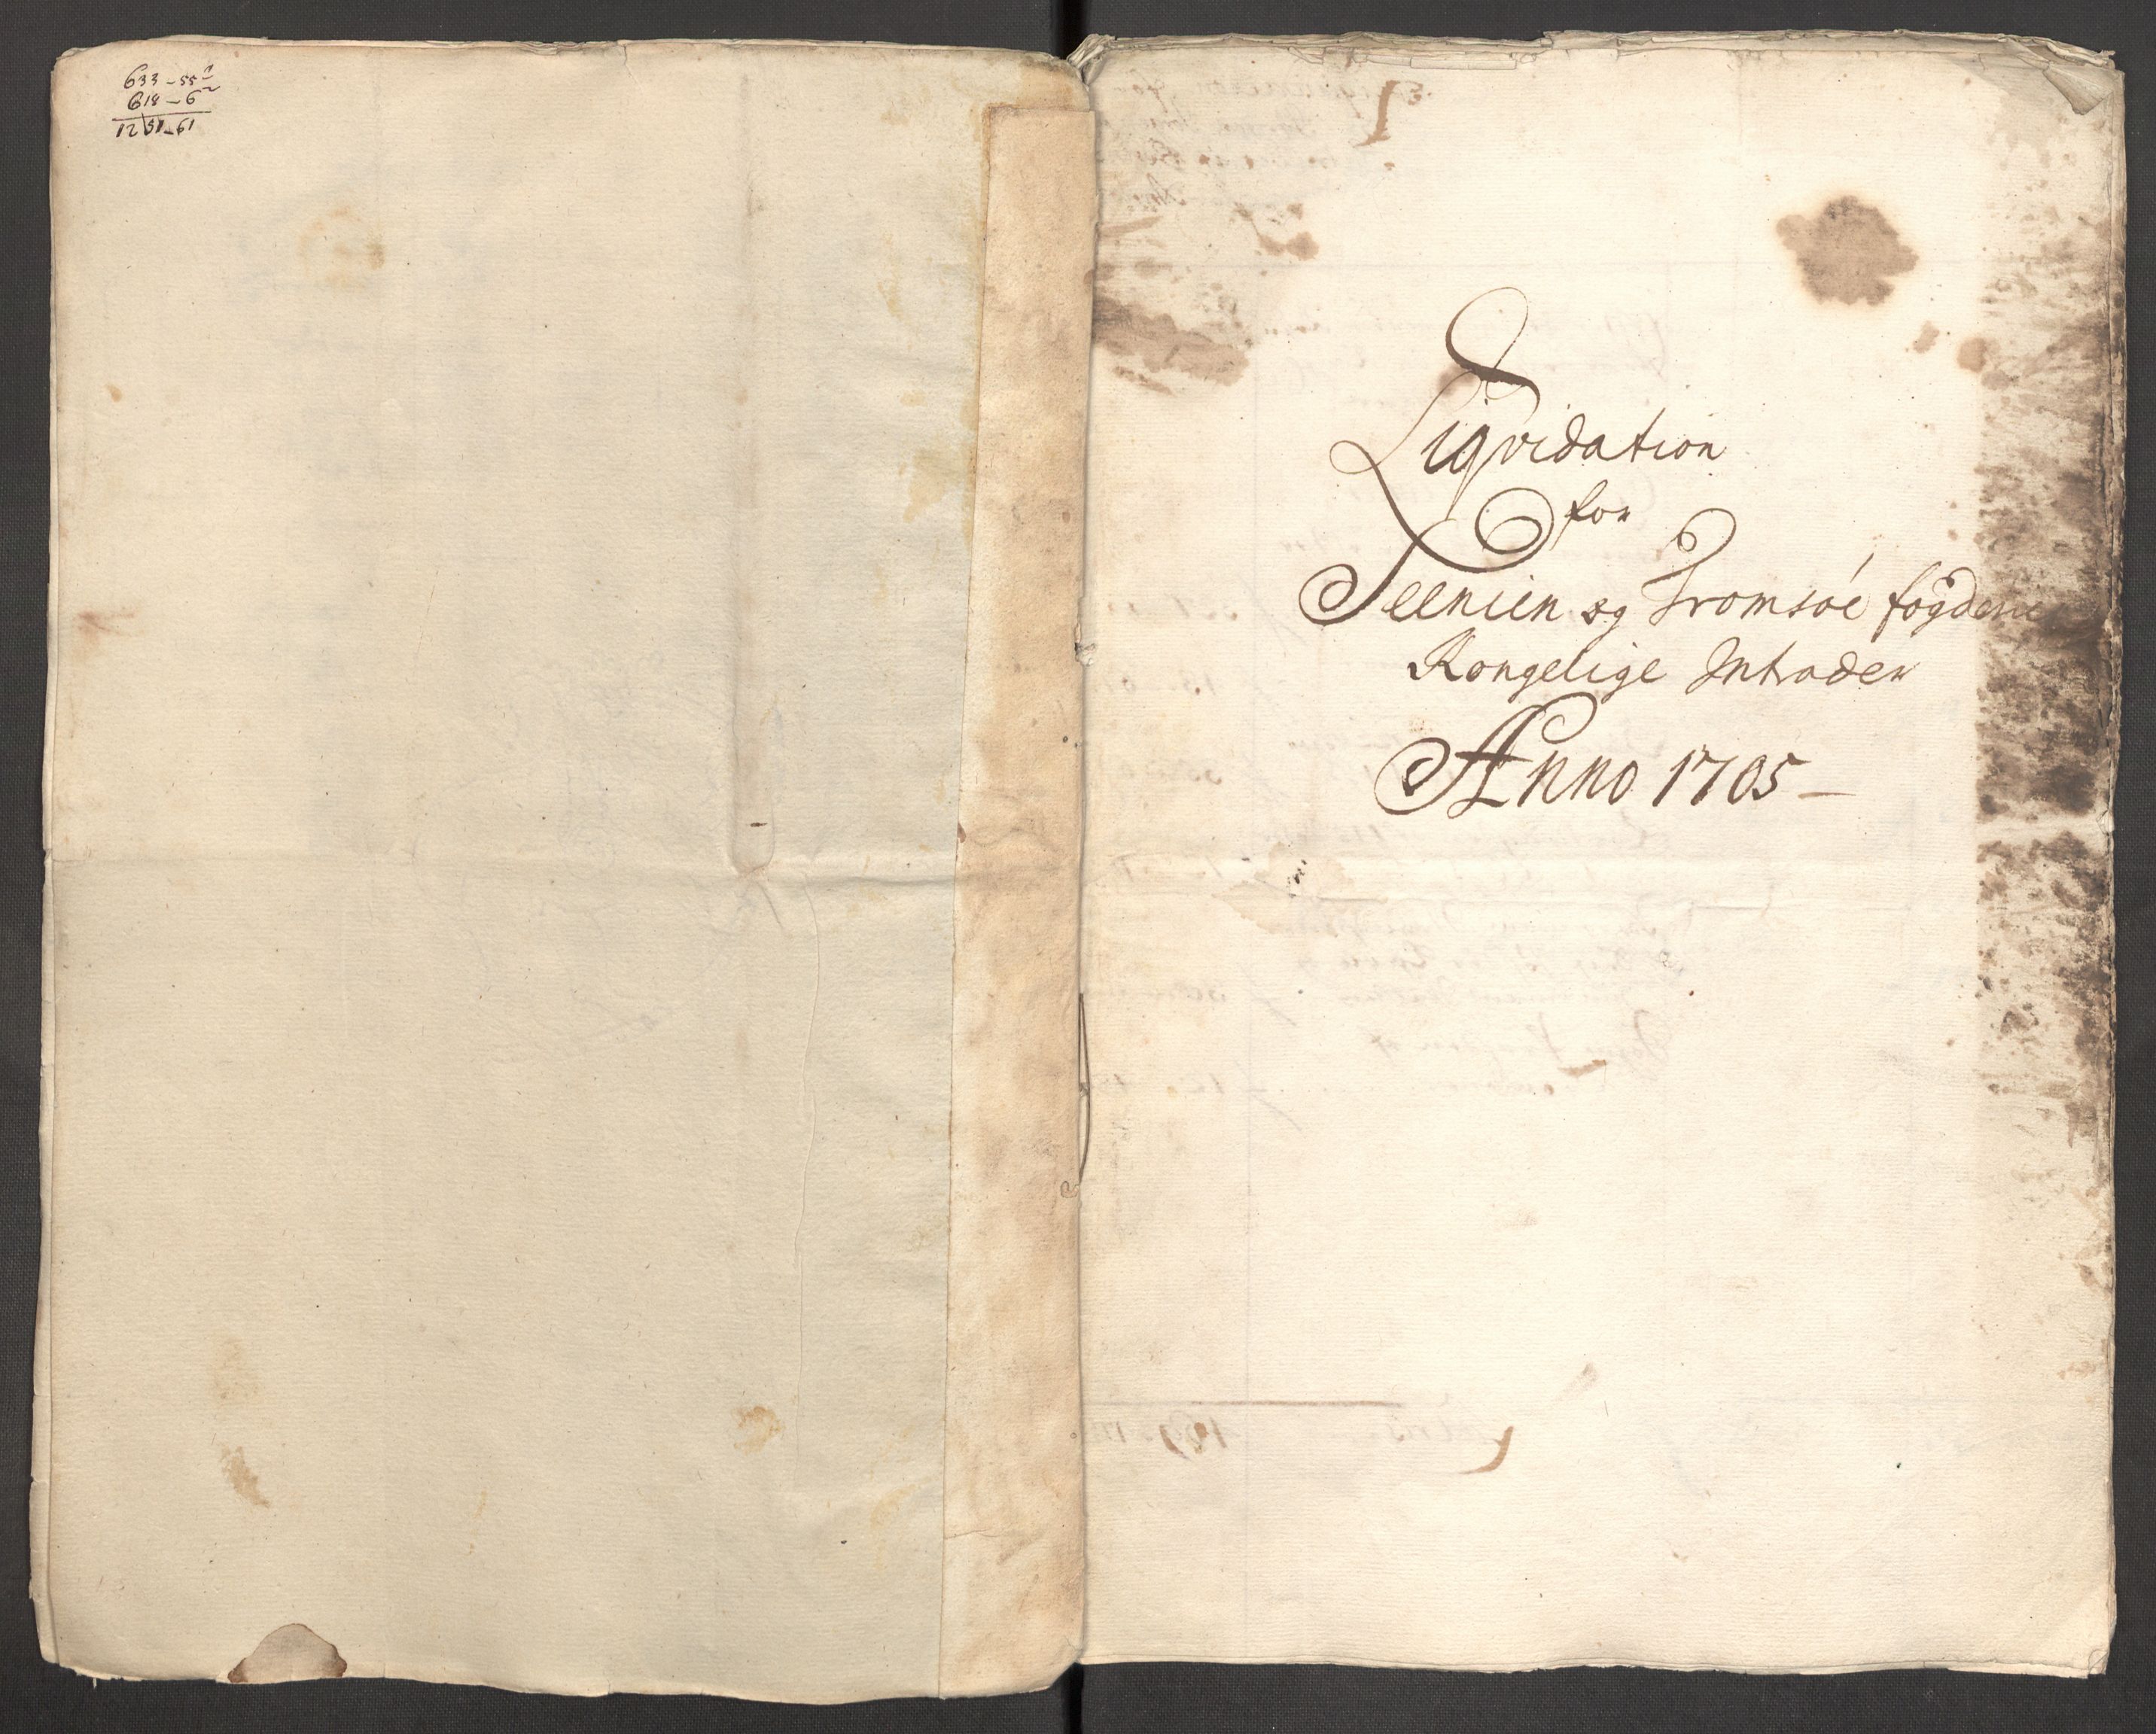 633-55
618-6
1251-61
Liqvidation
for
Seenien og Tromsøe fögderie
Kongelige Intrader
Anno 1705